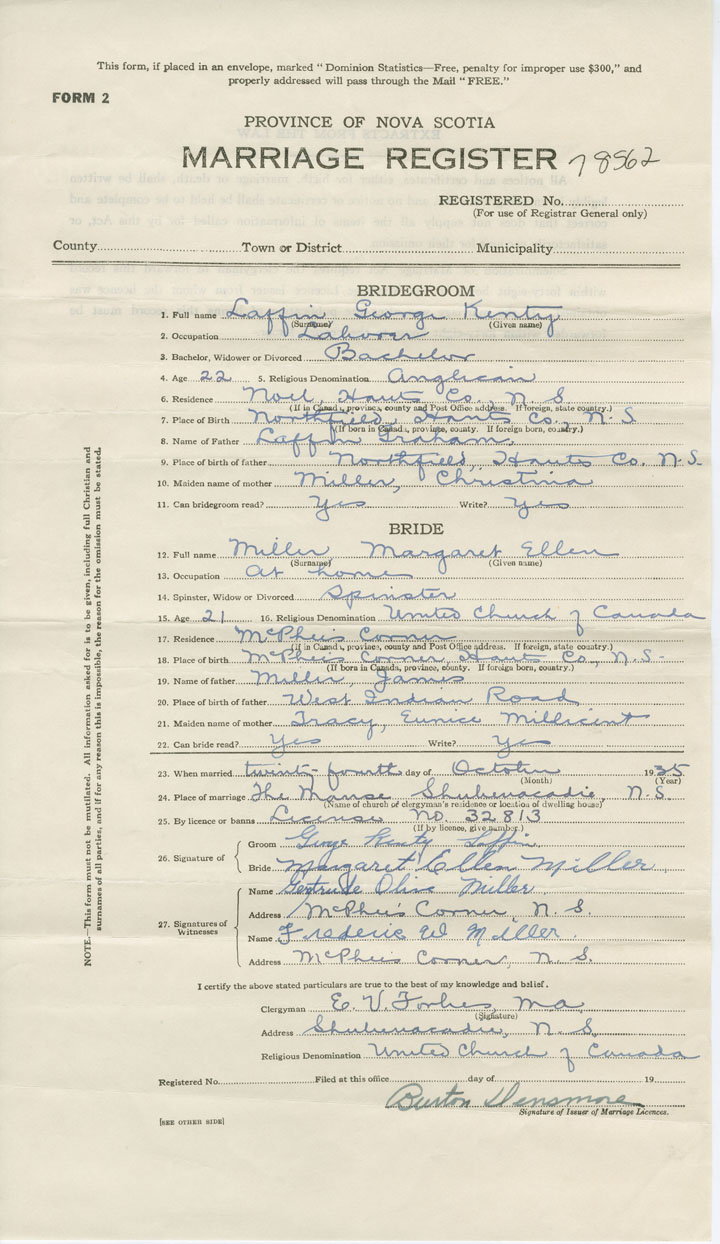 This form, if placed in an envelope, marked "Dominion Statistics—Free, penalty for improper use $300," and
properly addressed will pass through the Mail "FREE."
FORM 2
PROVINCE OF NOVA SCOTIA
MARRIAGE REGISTER 78562
REGISTERED No.
(For use of Registrar General only)
County Town or District Municipality
BRIDEGROOM
1. Full name Laffin George Kenty
(Surname) (Given name)
2. Occupation Laborer
3. Bachelor, Widower or Divorced Bachelor
4. Age 22 5. Religious Denomination Anglican
6. Residence Noel, Hants Co., N. S.
(If in Canada, province, county and Post Office address. If foreign, state country.)
7. Place of Birth Northfield, Hants Co., N. S.
(If born in Canada, province, county. If foreign born, country.)
8. Name of Father Laffin Graham,
9. Place of birth of father Northfield, Hants Co. N. S.
10. Maiden name of mother Miller, Christina
11. Can bridegroom read? Yes Write? Yes
BRIDE
12. Full name Miller Margaret Ellen
(Surname) (Given name)
13. Occupation At home
14. Spinster, Widow or Divorced Spinster
15. Age 21 16. Religious Denomination United Church of Canada
17. Residence McPhee's Corner
(If in Canada, province, county and Post Office address. If foreign, state country.)
18. Place of birth McPhee's Corner, Hants Co., N. S.
(If born in Canada, province, county. If foreign born, country.)
19. Name of father Miller, James
20. Place of birth of father West Indian Road
21. Maiden name of mother Tracy, Eunice Millicent
22. Can bride read? Yes Write? Yes
23. When married twenty-fourth day of October 1935
(Month) (Year)
24. Place of marriage The Manse Shubenacadie, N. S.
(Name of church of clergyman's residence or location of dwelling house)
25. By licence or banns License No. 32813
(If by licence, give number.)
26. Signature of
Groom George Kenty Laffin
Bride Margaret Ellen Miller
27. Signatures of Witnesses
Name Gertrude Olive Miller
Address McPhee's Corner, N. S.
Name Frederic W Miller.
Address McPhee's Corner, N. S.
I certify the above stated particulars are true to the best of my knowledge and belief.
Clergyman E. V. Forbes, M.A.
(Signature)
Address Shubenacadie, N. S.
Religious Denomination United Church of Canada
Registered No. Filed at this office day of 19
Burton Densmore
Signature of Issuer of Marriage Licences.
[SEE OTHER SIDE]
NOTE.—This form must not be mutilated. All information asked for is to be given, including full Christian and
surnames of all parties, and if for any reason this is impossible, the reason for the omission must be stated.